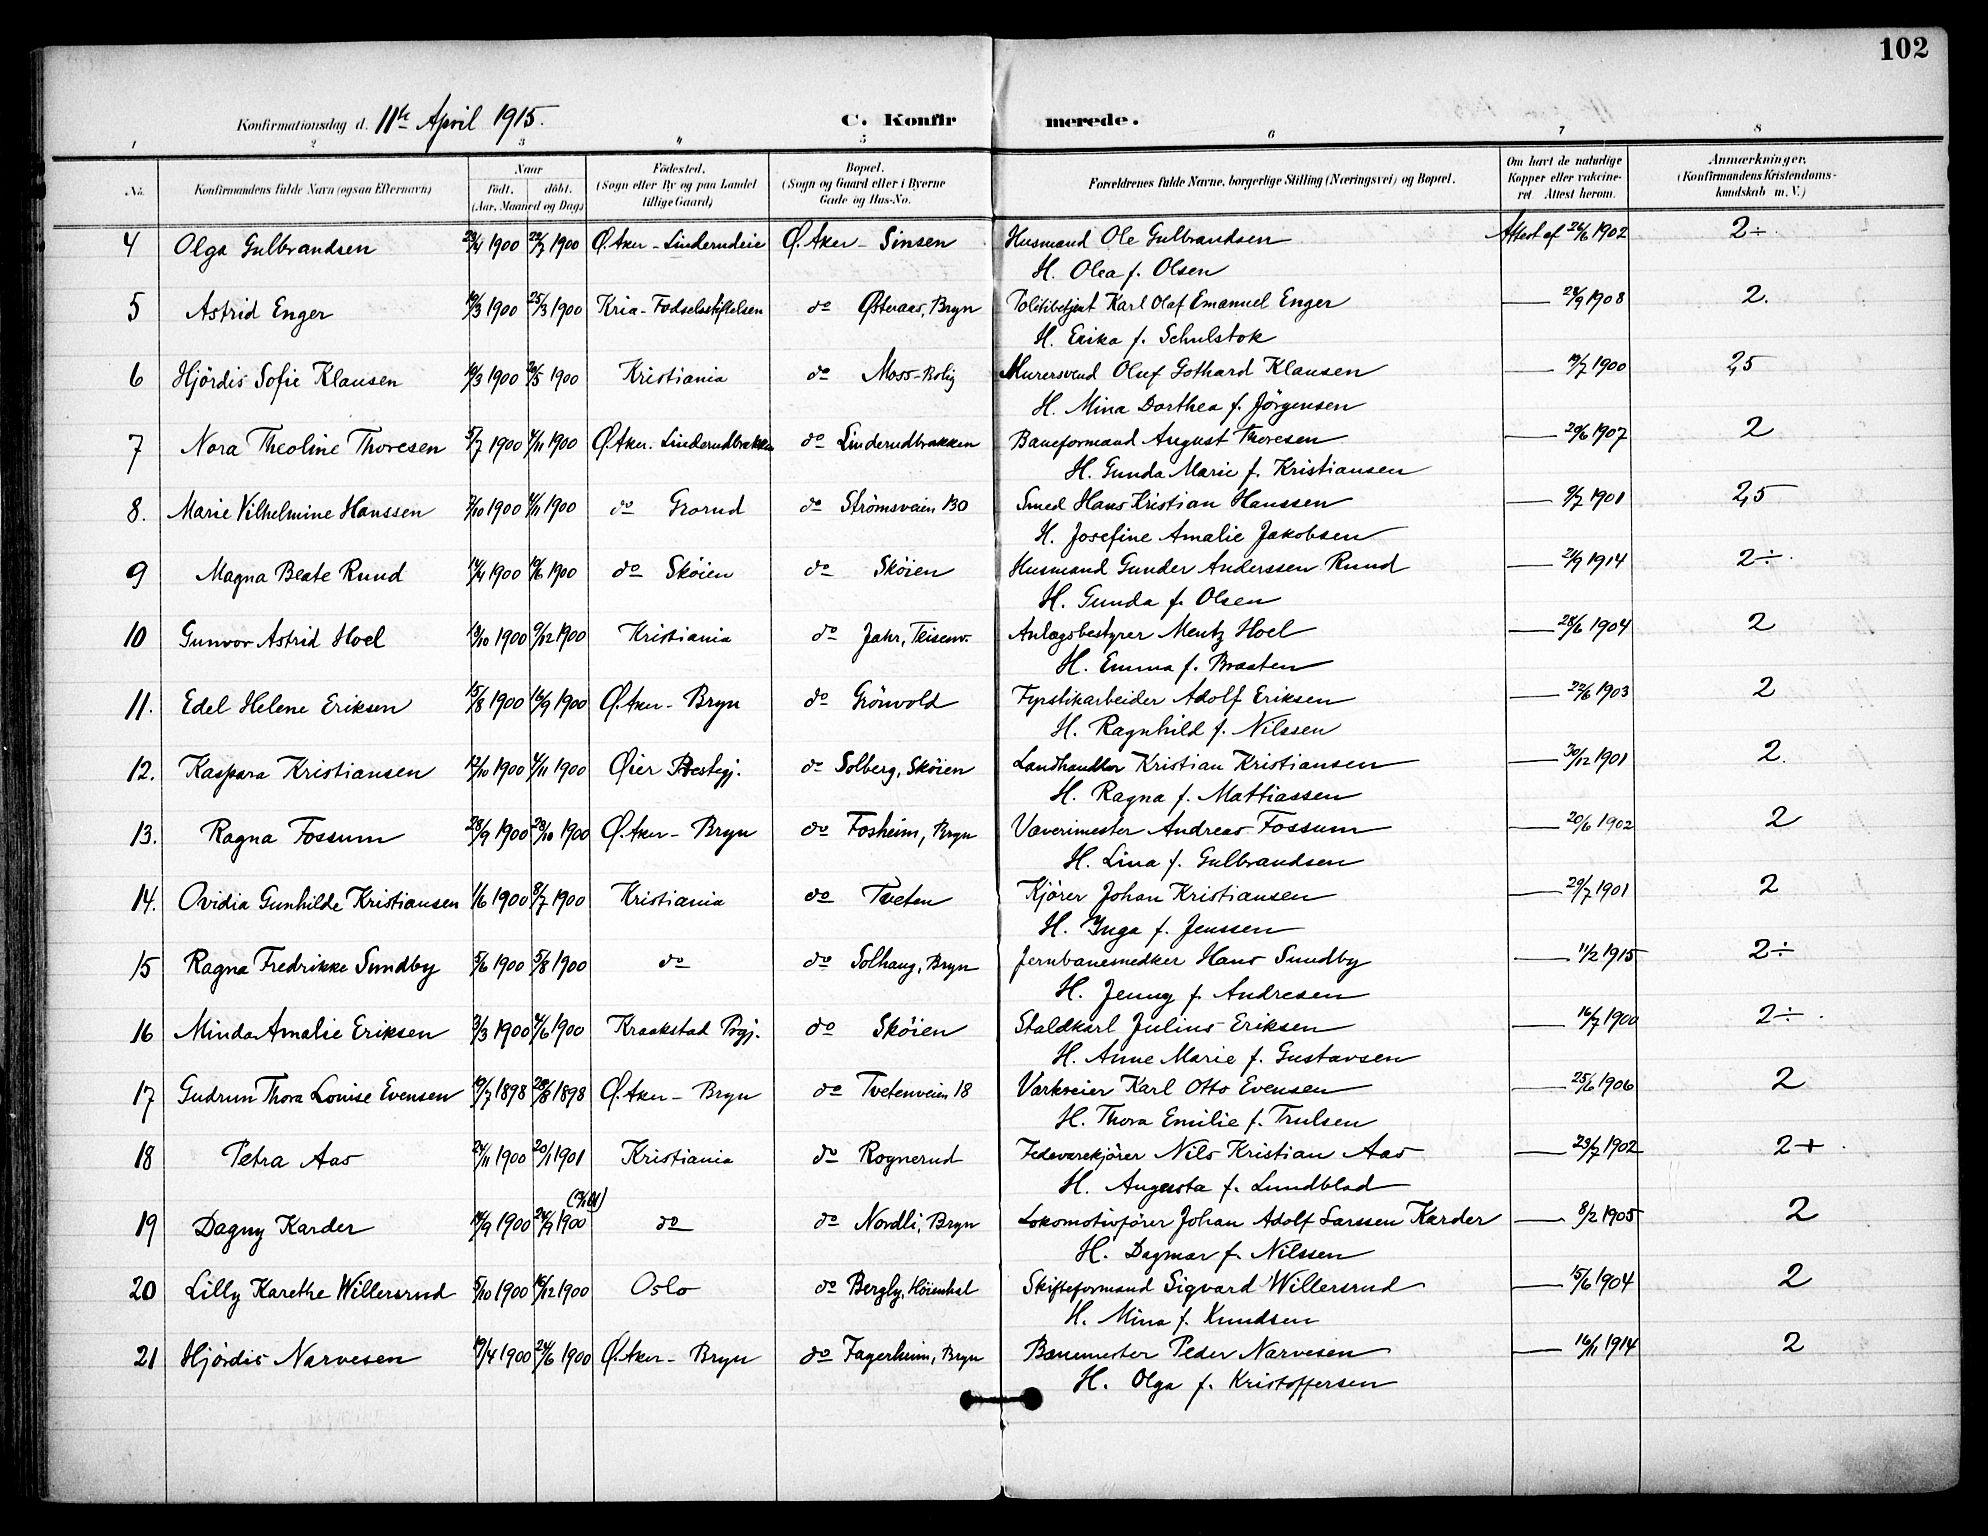 102
Konfirmationsdag d. 11te April 1915.
C. Konfirmerede.
1 2 3 4 5 6 7 8
No. Konfirmandens fulde Navn (ogsaa Efternavn) Naar født, døbt. (Aar, Maaned og Dag) Fødested, (Sogn eller By og paa Landet tillige Gaard) Bopæl. (Sogn og Gaard eller i Byerne Gade og Hus-No. Forældrenes fulde Navne, borgerlige Stilling (Næringsvei) og Bopæl. Om havt de naturlige Kopper eller vakcineret. Attest herom. Anmærkninger. (Konfirmandens Kristendomskundskab m. V.)
4 Olga Gulbrandsen 1900 1900 Ø. Aker - Linderudeie Ø. Aker - Sinsen Husmand Ole Gulbrandsen Attest af 26/6 1902 2÷
H. Olea f. Olsen
5 Astrid Enger 10/3 1900 25/3 1900 Kria - Fødselsstiftelsen do Østeraas, Bryn Politibetjent Karl Olaf Emanuel Enger — 24/9 1908 2.
H. Erika f. Schulstok
6 Hjördis Sofie Klausen 10/3 1900 20/5 1900 Kristiania do Moss-Bolig Murersvend Oluf Gothard Klausen — 19/7 1900 2,5
H. Mina Dorthea f. Jörgensen
7 Nora Theoline Thoresen 5/7 1900 4/11 1900 Ø. Aker. Linderudbakken do Linderudbakken Baneformand August Thoresen — 20/6 1907 2
H. Gunda Marie f. Kristiansen
8. Marie Vilhelmine Hanssen 7/10 1900 4/11 1900 do Grorud do Strømsveien 130 Smed Hans Kristian Hanssen — 9/7 1901 2,5
H. Josefine Amalie Jakobsen
9 Magna Beate Rund 14/4 1900 10/6 1900 do Skøien do Skøien Husmand Gunder Anderssen Rund — 21/9 1914 2÷
H. Gunda f. Olsen
10 Gunvor Astrid Hoel 13/10 1900 9/12 1900 Kristiania do Jahr, Teisenv. Anlægsbestyrer Mentz Hoel — 28/6 1904 2
H. Emma f. Braaten
11. Edel Helene Eriksen 15/8 1900 16/9 1900 Ø. Aker - Bryn do Grönvold Fyrstikarbeider Adolf Eriksen — 22/6 1903 2
H. Ragnhild f. Nilssen
12. Kaspara Kristiansen 12/10 1900 4/11 1900 Øier Prestegj. do Solberg, Skøien Landhandler Kristian Kristiansen — 30/12 1901 2.
H. Ragna f. Mattiassen
13. Ragna Fossum 28/9 1900 28/10 1900 Ø. Aker - Bryn do Fosheim, Bryn Væverimester Andreas Fossum — 20/6 1902 2
H. Lina f. Gulbrandsen
14. Ovidia Gunhilde Kristiansen 1/6 1900 8/7 1900 Kristiania do Tveten Kjører Johan Kristiansen — 29/7 1901 2
H. Inga f. Jenssen
15 Ragna Fredrikke Sundby 5/6 1900 5/8 1900 do do Solhaug, Bryn Jernbanesnedker Hans Sundby — 11/2 1915 2÷
H. Jenny f. Andresen
16 Minda Amalie Eriksen 3/3 1900 4/6 1900 Kraakstad Prgj. do Skøien Staldkarl Julius Eriksen — 16/7 1900 2÷
H. Anne Marie f. Gustavsen
17 Gudrun Thora Louise Evensen 19/7 1898 28/8 1898 Ø. Aker - Bryn do Tvetenveien 18 Værkeier Karl Otto Evensen — 25/6 1906 2
H. Thora Emilie f. Trulsen
18 Petra Aas 24/11 1900 20/1 1901 Kristiania do Rognerud Fedevarekjører Nils Kristian Aas — 23/7 1902 2+
H. Augusta f. Lundblad
19 Dagny Karder 14/9 1900 24/9 1900 do do Nordli, Bryn Lokomotivfører Johan Adolf Larssen Karder — 8/2 1905 2
H. Dagmar f. Nilssen
20 Lilly Karethe Willersrud 5/10 1900 16/12 1900 Oslo do Bergly, Høienhal Skifteformand Sigvard Willersrud — 15/6 1904 2
H. Mina f. Knudsen
21 Hjördis Narvesen 19/4 1900 24/6 1900 Ø. Aker - Bryn do Fagerheim, Bryn Banemester Peder Narvesen — 16/11 1914 2
H. Olga f. Kristoffersen